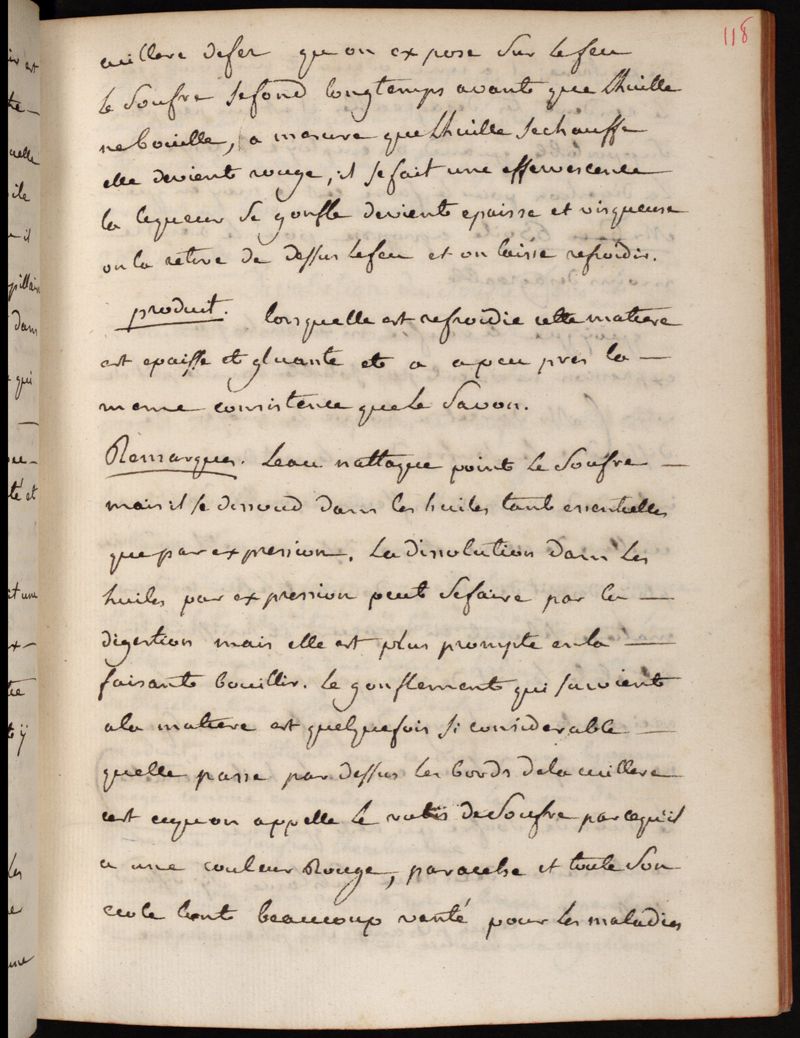 118
cuillere defer quon expose Sur lefeu
le Soufre sefond longtemps avant que Lhuille
nebouille, a mesure que Lhuille sechauffe
elle devient rouge, il sefait une effervescence
la liqueur Se gonfle devient epaisse et visqueuse
on la retire de dessus lefeu et on laisse refroidir.
produit. lorsquelle est refroidie cette matiere
est epaisse et gluante et a apeu pres la —
meme consistence que Le Savon.
Remarques. Leau nattaque point Le Soufre —
mais il se dissoud dans les huiles tant essentielles
que par expression. La dissolution dans Les
huiles par expression peut Sefaire par la —
digestion mais elle est plus prompte enla —
faisant bouillir. Le gonflement qui survient
ala matiere est quelquefois si considerable —
quelle passe par dessus Les bords dela cuillere
cest cequon appelle Le rubis de Soufre parcequil
a une couleur Rouge, paracelse et toute Son
ecole Lont beaucoup vanté pour Les maladies